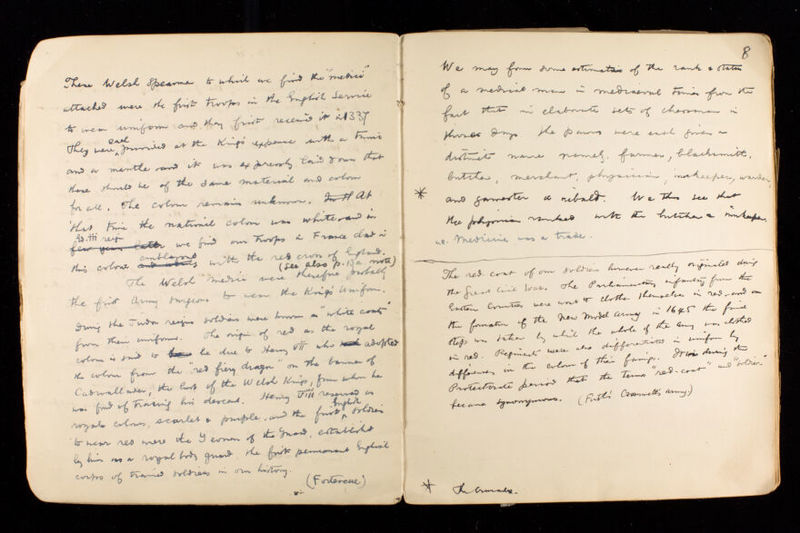 These Welsh Spearmen to which we find the "medici"
attached were the first troops in the English service
to wear uniform and they first received it in 1337
They were each provided at the King's expense with a tunic
and a mantle and it was expressly laid down that
these should be of the same material and colour
for all. The colour remains unknown. At
that time the national colour was white and in
Ed. III reign
few years later we find our troops in France clad in
this colour emblazoned with the red cross of England.
(See also p. 13a note)
The Welsh "medici" were therefore probably
the first Army surgeons to wear the King's Uniform.
During the Tudor reigns soldiers were known as "white coats"
from their uniforms. The origin of red as the royal
colour is said to be due to Henry VII who adopted
the colour from the "red fiery dragon" on the banner of
Cadwallader, the last of the Welsh Kings, from whom he
was fond of tracing his descent. Henry VIII reserved as
royal colours, scarlet & purple, and the first English soldiers
to wear red were the Yeomen of the Guard, established
by him as a royal body guard, the first permanent English
corps of trained soldiers in our history.
(Fortescue)
8
We may form some estimate of the rank & status
of a medical man in mediaeval times from the
fact that in elaborate sets of chessmen in
those days the pawns were each given a
distinct name namely, farmer, blacksmith,
butcher, merchant, physician, innkeeper, warder,
* and gamester or ribald. We thus see that
the physician ranked with the butcher & innkeeper,
i.e. Medicine was a trade.
The red coat of our soldiers however really originated during
the Great Civil War. The Parliamentary infantry from the
Eastern Counties were wont to clothe themselves in red, and on
the formation of the New Model Army in 1645 the final
step was taken by which the whole of the army was clothed
in red. Regiments were also differentiated in uniform by
differences in the colour of their facings. It was during the
Protectorate period that the terms "red-coat" and "soldier"
became synonymous. (Firth's Cromwell's Army)
* The Chronicles.